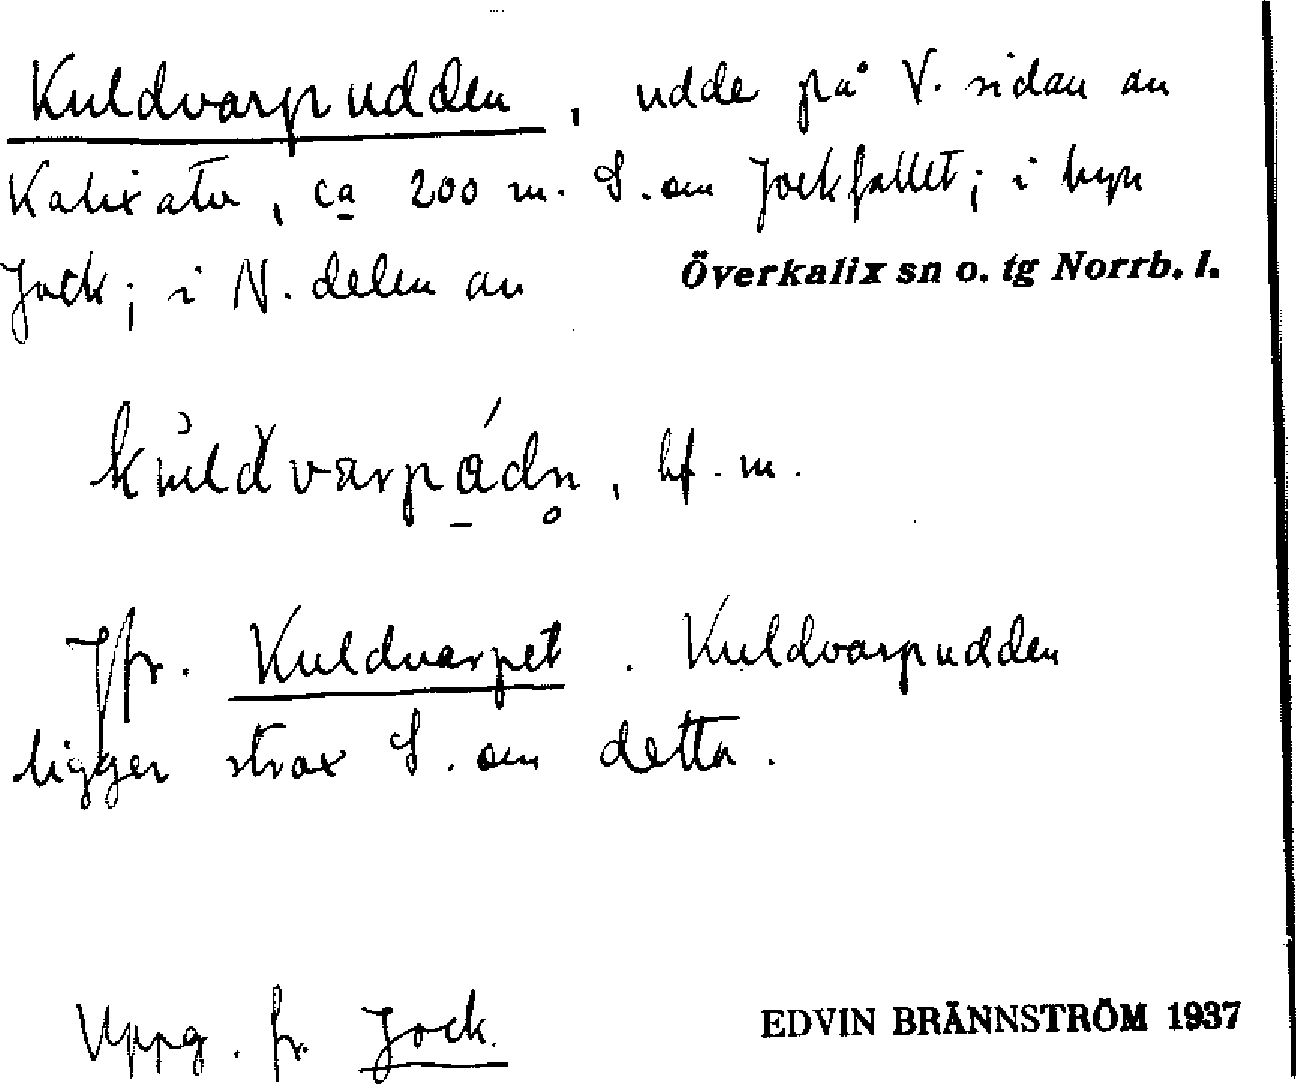 Kuldvarpudden, udde på V. sidan av
Kalixälv, ca 200 m. S. om Jockfallet; i byn
Jock; i N. delen av Överkalix sn o. tg Norrb. l.
bf. m.
Jfr. Kuldvarpet. Kuldvarpudden
ligger strax S. om detta.
Uppg. fr. Jock. EDVIN BRÄNNSTRÖM 1937